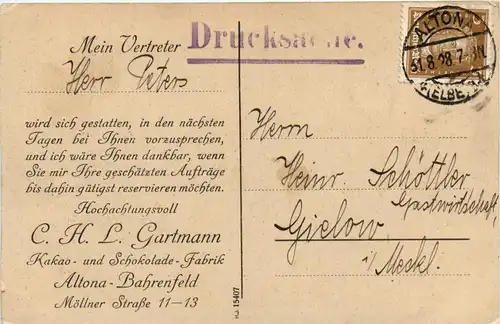 Mein Vertreter
Herr Peters
wird sich gestatten, in den nächsten
Tagen bei Ihnen vorzusprechen,
und ich wäre Ihnen dankbar, wenn
Sie mir Ihre geschätzten Aufträge
bis dahin gütigst reservieren möchten.
Hochachtungsvoll
C. H. L. Gartmann
Kakao- und Schokolade-Fabrik
Altona-Bahrenfeld
Möllner Straße 11—13
Drucksache.
ALTONA
31.8.28.7-8N
(ELBE)
Herrn
Heinr. Schöttler
Gastwirtschaft
Gielow
i/Meckl.
J 15407